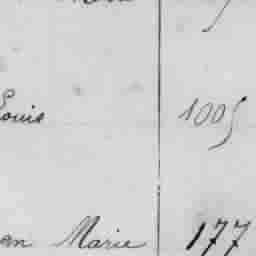 Louis 1005
an Marie 177